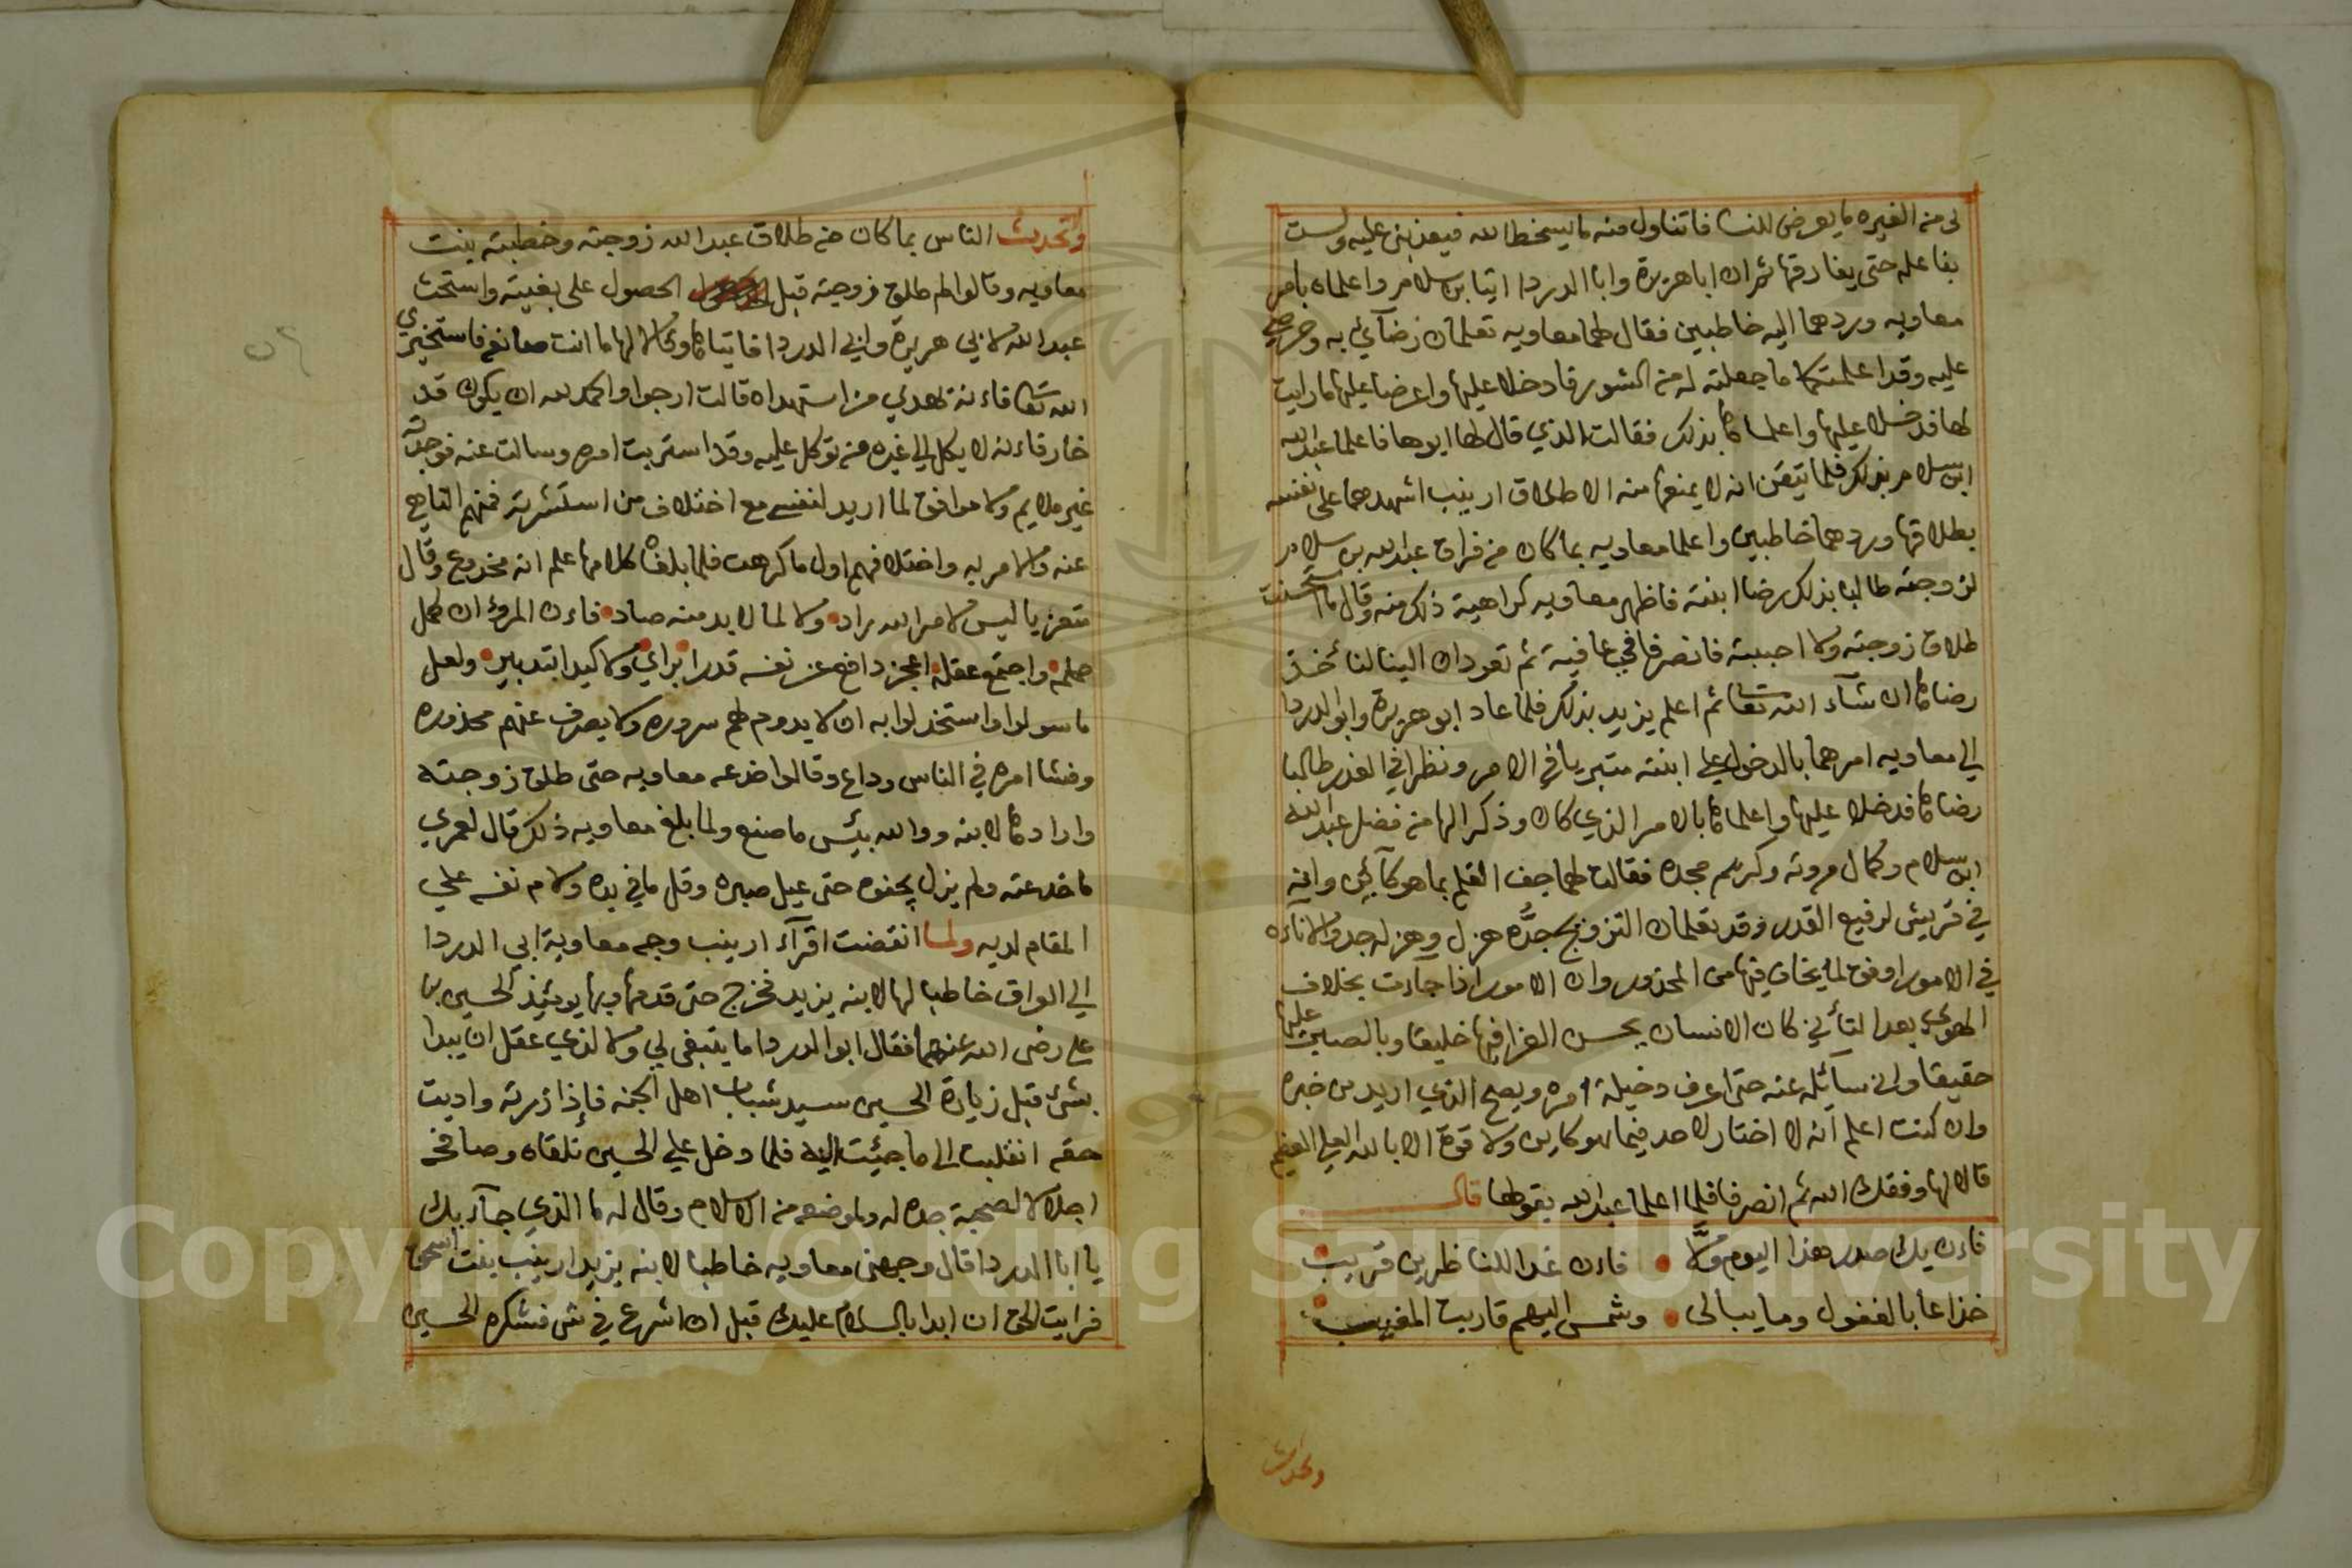 لى من الغيره ما يعرض للنسا فاتناول منه ما يسخط الله فيعذبنى عليه ولست
بفاعله حتى يفارقها ثم ان اباهريرة وابا الدردا اتيا بن سلام واعلماه بامر
معاويه وردهما اليه خاطبين فقال لهما معاويه تعلمان رضآئي به وحرصي
عليه وقد اعلمتكما ما جعلته له من الشور فادخلا عليها واعرضا عليها ما رايت
لها فدخلا عليها واعلماها بذلك فقالت الذي قال لها ابوها فاعلما عبدالله
ابن سلام بذلك فلما تيقن انه لا يمنعها منه الا طلاق ارينب اشهدهما على نفسه
بطلاقها وردهما خاطبين واعلما معاويه بما كان من فراق عبدالله بن سلام
لزوجته طالبا بذلك رضا ابنته فاظهر معاويه كراهية ذلك منه وقال ما استحسنت
طلاق زوجته ولا احببته فانصرفا في عافية ثم تعودان الينا لنأخذ
رضاها ان شآء الله تعا ثم اعلم يزيد بذلك فلما عاد ابو هريرة وابو الدردا
الي معاويه امرهما بالدخول علي ابنته متبريا في الامر ونظرا في الغدر طالبا
رضاها فدخلا عليها واعلماها بالامر الذي كان وذكرا لها من فضل عبدالله
ابن سلام وكمال مروته وكريم مجده فقالت لهما جف القلم بما هو كآئن وانه
في قريش لرفيع القدر وقد تعلمان التزوج جدُّه هزل وهزله جد والاناءه
في الامور اوفق لما يخاف فيها من المحذور وان الامور اذا جاءت بخلاف
الهوي بعد التأني كان الانسان بحسن العزا فيها خليقا وبالصبر عليها
حقيقا واني سآئله عنه حتى اعرف دخيلة امره ويصح الذي اريد من خبره
وان كنت اعلم انه لا اختار لاحد فيما هو كاين ولا قوة الا بالله العلي العظيم
قالا لها وفقك الله ثم انصرفا فلما اعلما عبدالله بقولها قال
فاءن يك صدر هذا اليوم ولَّا • فاءن غدا للناظرين قريب
خزاعا بالغفول وما يبالى • وشمس اليهم قاربت المغيب
وتحدث
وتحدث الناس بما كان من طلاق عبدالله زوجته وخطبته بنت
معاويه وقالوا لم طلق زوجته قبل الحصول على بغيته واستحث
عبدالله لابي هريرة وابي الدردا فاتياها وقالا لها ما انت صانعه فاستخيري
الله تعا فاءنه لهدي من استهداه قالت ارجوا والحمد لله ان يكون قد
خار فاءنه لا يكل الي غيره من توكل عليه وقد استربت امره وسالت عنه فوجدته
غير ملايم ولا موافق لما اريد لنفسي مع اختلاف من استشرته فمنهم الناهي
عنه والامر به واختلافهم اول ما كرهت فلما بلغه كلامها علم انه مخدوع وقال
متعزيا ليس لامر الله براد • ولا لما لابد منه صاد • فاءن المرؤ ان كمل
حلمه • واجتمع عقله • اعجز دافع عن نفسه قدرا • براي • ولا كيدا بتدبير • ولعل
ما سولوا واستخذلوا به ان لا يدوم لهم سروره ولا يصرف عنهم محذوره
وفشا امره في الناس وداع وقالوا خدعه معاويه حتى طلق زوجته
وارادها لابنه ووالله بئيس ما صنع ولما بلغ معاويه ذلك قال لعمري
ما خدعته ولم يزل يجفوه حتى عيل صبره وقل ما في يده ولام نفسه علي
المقام لديه ولما انقضت اقرآء ارينب وجه معاوية ابي الدردا
الي العراق خاطبا لها لابنه يزيد فخرج حتى قدمها وبها يومئيذ الحسين بن
علي رضى الله عنهما فقال ابو الدردا ما ينبغى لي ولا لذي عقل ان يبدا
بشئ قبل زيارة الحسين سيد شباب اهل الجنه فإذا زرته واديت
حقه انقلبت الى ما جيئت اليه فلما دخل علي الحسين تلقاه وصافحه
اجلالا لصحبة جده له ولموضعه من الاسلام وقال له ما الذي جآء بك
يا ابا الدردا قال وجهنى معاويه خاطبا لابنه يزيد ارينب بنت اسحق
فرايت الحق ان ابدا بالسلام عليك قبل ان اشرع في شى فشكره الحسين